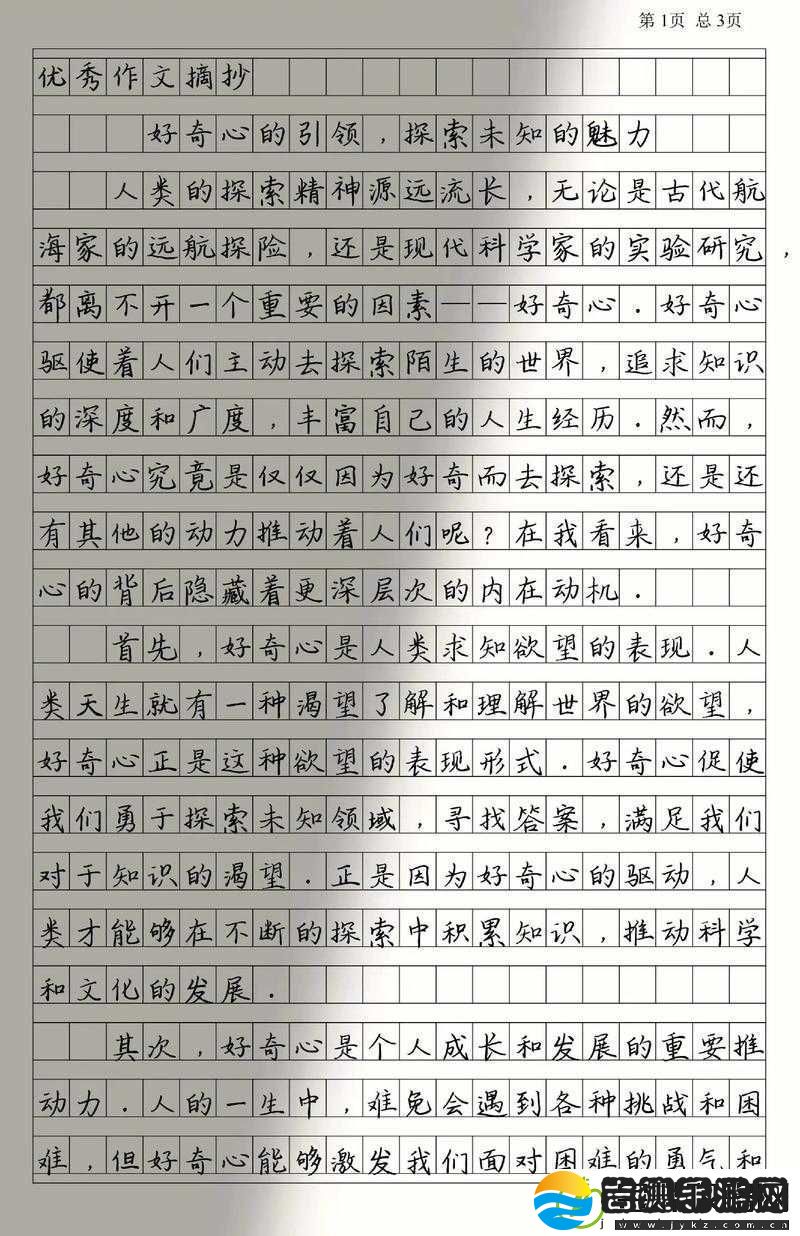 第1页 总3页
优秀作文摘抄
好奇心的引领，探索未知的魅力
人类的探索精神源远流长，无论是古代航
海家的远航探险，还是现代科学家的实验研究，
都离不开一个重要的因素——好奇心．好奇心
驱使着人们主动去探索陌生的世界，追求知识
的深度和广度，丰富自己的人生经历．然而，
好奇心究竟是仅仅因为好奇而去探索，还是还
有其他的动力推动着人们呢？在我看来，好奇
心的背后隐藏着更深层次的内在动机．
首先，好奇心是人类求知欲望的表现．人
类天生就有一种渴望了解和理解世界的欲望，
好奇心正是这种欲望的表现形式．好奇心促使
我们勇于探索未知领域，寻找答案，满足我们
对于知识的渴望．正是因为好奇心的驱动，人
类才能够在不断的探索中积累知识，推动科学
和文化的发展．
其次，好奇心是个人成长和发展的重要推
动力．人的一生中，难免会遇到各种挑战和困
难，但好奇心能够激发我们面对困难的勇气和
www.jykz.com.cn